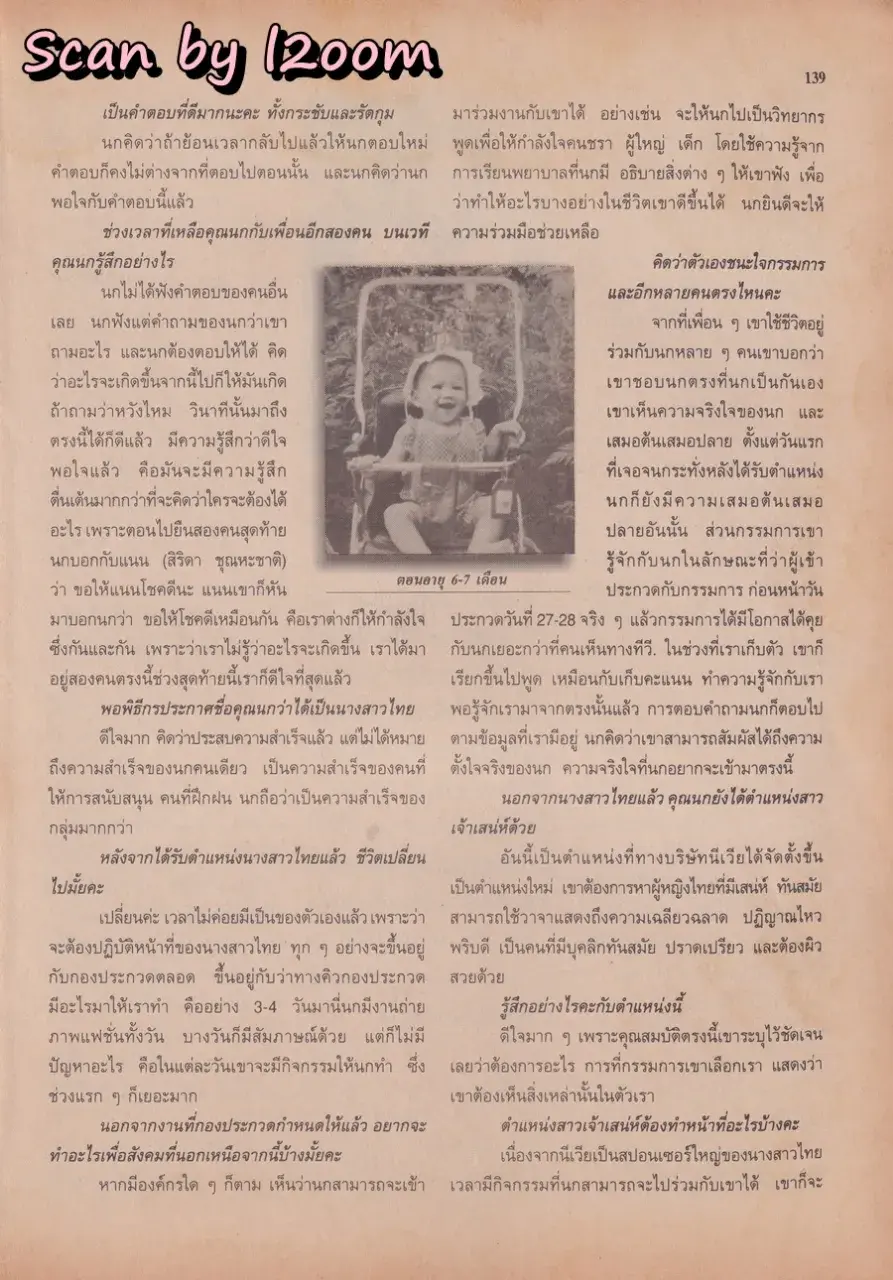 Scan by l2oom
139
เป็นคำตอบที่ดีมากนะคะ ทั้งกระชับและรัดกุม
นกคิดว่าถ้าย้อนเวลากลับไปแล้วให้นกตอบใหม่
คำตอบก็คงไม่ต่างจากที่ตอบไปตอนนั้น และนกคิดว่านก
พอใจกับคำตอบนี้แล้ว
ช่วงเวลาที่เหลือคุณนกกับเพื่อนอีกสองคน บนเวที
คุณนกรู้สึกอย่างไร
นกไม่ได้ฟังคำตอบของคนอื่น
เลย นกฟังแต่คำถามของนกว่าเขา
ถามอะไร และนกต้องตอบให้ได้ คิด
ว่าอะไรจะเกิดขึ้นจากนี้ไปก็ให้มันเกิด
ถ้าถามว่าหวังไหม วินาทีนั้นมาถึง
ตรงนี้ได้ก็ดีแล้ว มีความรู้สึกว่าดีใจ
พอใจแล้ว คือมันจะมีความรู้สึก
ตื่นเต้นมากกว่าที่จะคิดว่าใครจะต้องได้
อะไร เพราะตอนไปยืนสองคนสุดท้าย
นกบอกกับแนน (สิริดา ชุณหะชาติ)
ว่า ขอให้แนนโชคดีนะ แนนเขาก็หัน
มาบอกนกว่า ขอให้โชคดีเหมือนกัน คือเราต่างก็ให้กำลังใจ
ซึ่งกันและกัน เพราะว่าเราไม่รู้ว่าอะไรจะเกิดขึ้น เราได้มา
อยู่สองคนตรงนี้ช่วงสุดท้ายนี้เราก็ดีใจที่สุดแล้ว
พอพิธีกรประกาศชื่อคุณนกว่าได้เป็นนางสาวไทย
ดีใจมาก คิดว่าประสบความสำเร็จแล้ว แต่ไม่ได้หมาย
ถึงความสำเร็จของนกคนเดียว เป็นความสำเร็จของคนที่
ให้การสนับสนุน คนที่ฝึกฝน นกถือว่าเป็นความสำเร็จของ
กลุ่มมากกว่า
หลังจากได้รับตำแหน่งนางสาวไทยแล้ว ชีวิตเปลี่ยน
ไปมั้ยคะ
เปลี่ยนค่ะ เวลาไม่ค่อยมีเป็นของตัวเองแล้ว เพราะว่า
จะต้องปฏิบัติหน้าที่ของนางสาวไทย ทุก ๆ อย่างจะขึ้นอยู่
กับกองประกวดตลอด ขึ้นอยู่กับว่าทางคิวกองประกวด
มีอะไรมาให้เราทำ คืออย่าง 3-4 วันมานี่นกมีงานถ่าย
ภาพแฟชั่นทั้งวัน บางวันก็มีสัมภาษณ์ด้วย แต่ก็ไม่มี
ปัญหาอะไร คือในแต่ละวันเขาจะมีกิจกรรมให้นกทำ ซึ่ง
ช่วงแรก ๆ ก็เยอะมาก
นอกจากงานที่กองประกวดกำหนดให้แล้ว อยากจะ
ทำอะไรเพื่อสังคมที่นอกเหนือจากนี้บ้างมั้ยคะ
หากมีองค์กรใด ๆ ก็ตาม เห็นว่านกสามารถจะเข้า
มาร่วมงานกับเขาได้ อย่างเช่น จะให้นกไปเป็นวิทยากร
พูดเพื่อให้กำลังใจคนชรา ผู้ใหญ่ เด็ก โดยใช้ความรู้จาก
การเรียนพยาบาลที่นกมี อธิบายสิ่งต่าง ๆ ให้เขาฟัง เพื่อ
ว่าทำให้อะไรบางอย่างในชีวิตเขาดีขึ้นได้ นกยินดีจะให้
ความร่วมมือช่วยเหลือ
ตอนอายุ 6-7 เดือน
คิดว่าตัวเองชนะใจกรรมการ
และอีกหลายคนตรงไหนคะ
จากที่เพื่อน ๆ เขาใช้ชีวิตอยู่
ร่วมกับนกหลาย ๆ คนเขาบอกว่า
เขาชอบนกตรงที่นกเป็นกันเอง
เขาเห็นความจริงใจของนก และ
เสมอต้นเสมอปลาย ตั้งแต่วันแรก
ที่เจอจนกระทั่งหลังได้รับตำแหน่ง
นกก็ยังมีความเสมอต้นเสมอ
ปลายอันนั้น ส่วนกรรมการเขา
รู้จักกับนกในลักษณะที่ว่าผู้เข้า
ประกวดกับกรรมการ ก่อนหน้าวัน
ประกวดวันที่ 27-28 จริง ๆ แล้วกรรมการได้มีโอกาสได้คุย
กับนกเยอะกว่าที่คนเห็นทางทีวี. ในช่วงที่เราเก็บตัว เขาก็
เรียกขึ้นไปพูด เหมือนกับเก็บคะแนน ทำความรู้จักกับเรา
พอรู้จักเรามาจากตรงนั้นแล้ว การตอบคำถามนกก็ตอบไป
ตามข้อมูลที่เรามีอยู่ นกคิดว่าเขาสามารถสัมผัสได้ถึงความ
ตั้งใจจริงของนก ความจริงใจที่นกอยากจะเข้ามาตรงนี้
นอกจากนางสาวไทยแล้ว คุณนกยังได้ตำแหน่งสาว
เจ้าเสน่ห์ด้วย
อันนี้เป็นตำแหน่งที่ทางบริษัทนีเวียได้จัดตั้งขึ้น
เป็นตำแหน่งใหม่ เขาต้องการหาผู้หญิงไทยที่มีเสน่ห์ ทันสมัย
สามารถใช้วาจาแสดงถึงความเฉลียวฉลาด ปฏิญาณไหว
พริบดี เป็นคนที่มีบุคลิกทันสมัย ปราดเปรียว และต้องผิว
สวยด้วย
รู้สึกอย่างไรคะกับตำแหน่งนี้
ดีใจมาก ๆ เพราะคุณสมบัติตรงนี้เขาระบุไว้ชัดเจน
เลยว่าต้องการอะไร การที่กรรมการเขาเลือกเรา แสดงว่า
เขาต้องเห็นสิ่งเหล่านั้นในตัวเรา
ตำแหน่งสาวเจ้าเสน่ห์ต้องทำหน้าที่อะไรบ้างคะ
เนื่องจากนีเวียเป็นสปอนเซอร์ใหญ่ของนางสาวไทย
เวลามีกิจกรรมที่นกสามารถจะไปร่วมกับเขาได้ เขาก็จะ